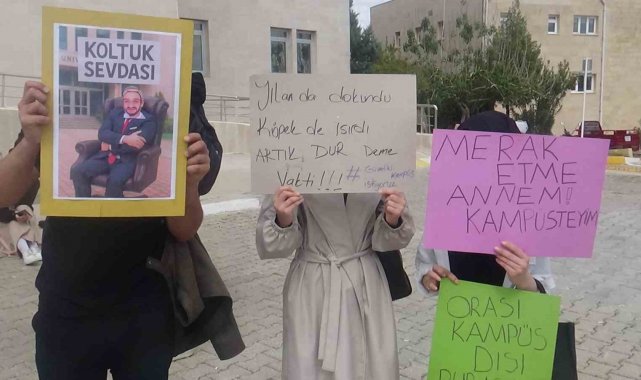 KOLTUK
SEVDASI
Yılan da dokundu
Köpek de ısırdı
ARTIK DUR Deme
Vakti!!!
#Güvenli Kampüs
istiyoruz
MERAK
ETME
ANNEM!
KAMPÜSTEYİM
ORASI
KAMPÜS
DIŞI